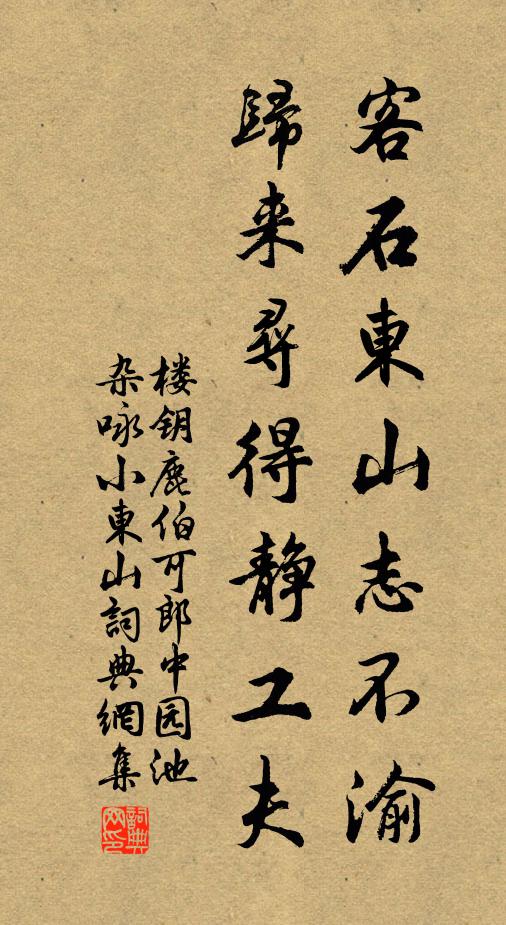 客石東山志不渝
歸来尋得静工夫
楼钥鹿伯可郎中园池
杂咏小東山詞典網集
詞典网印